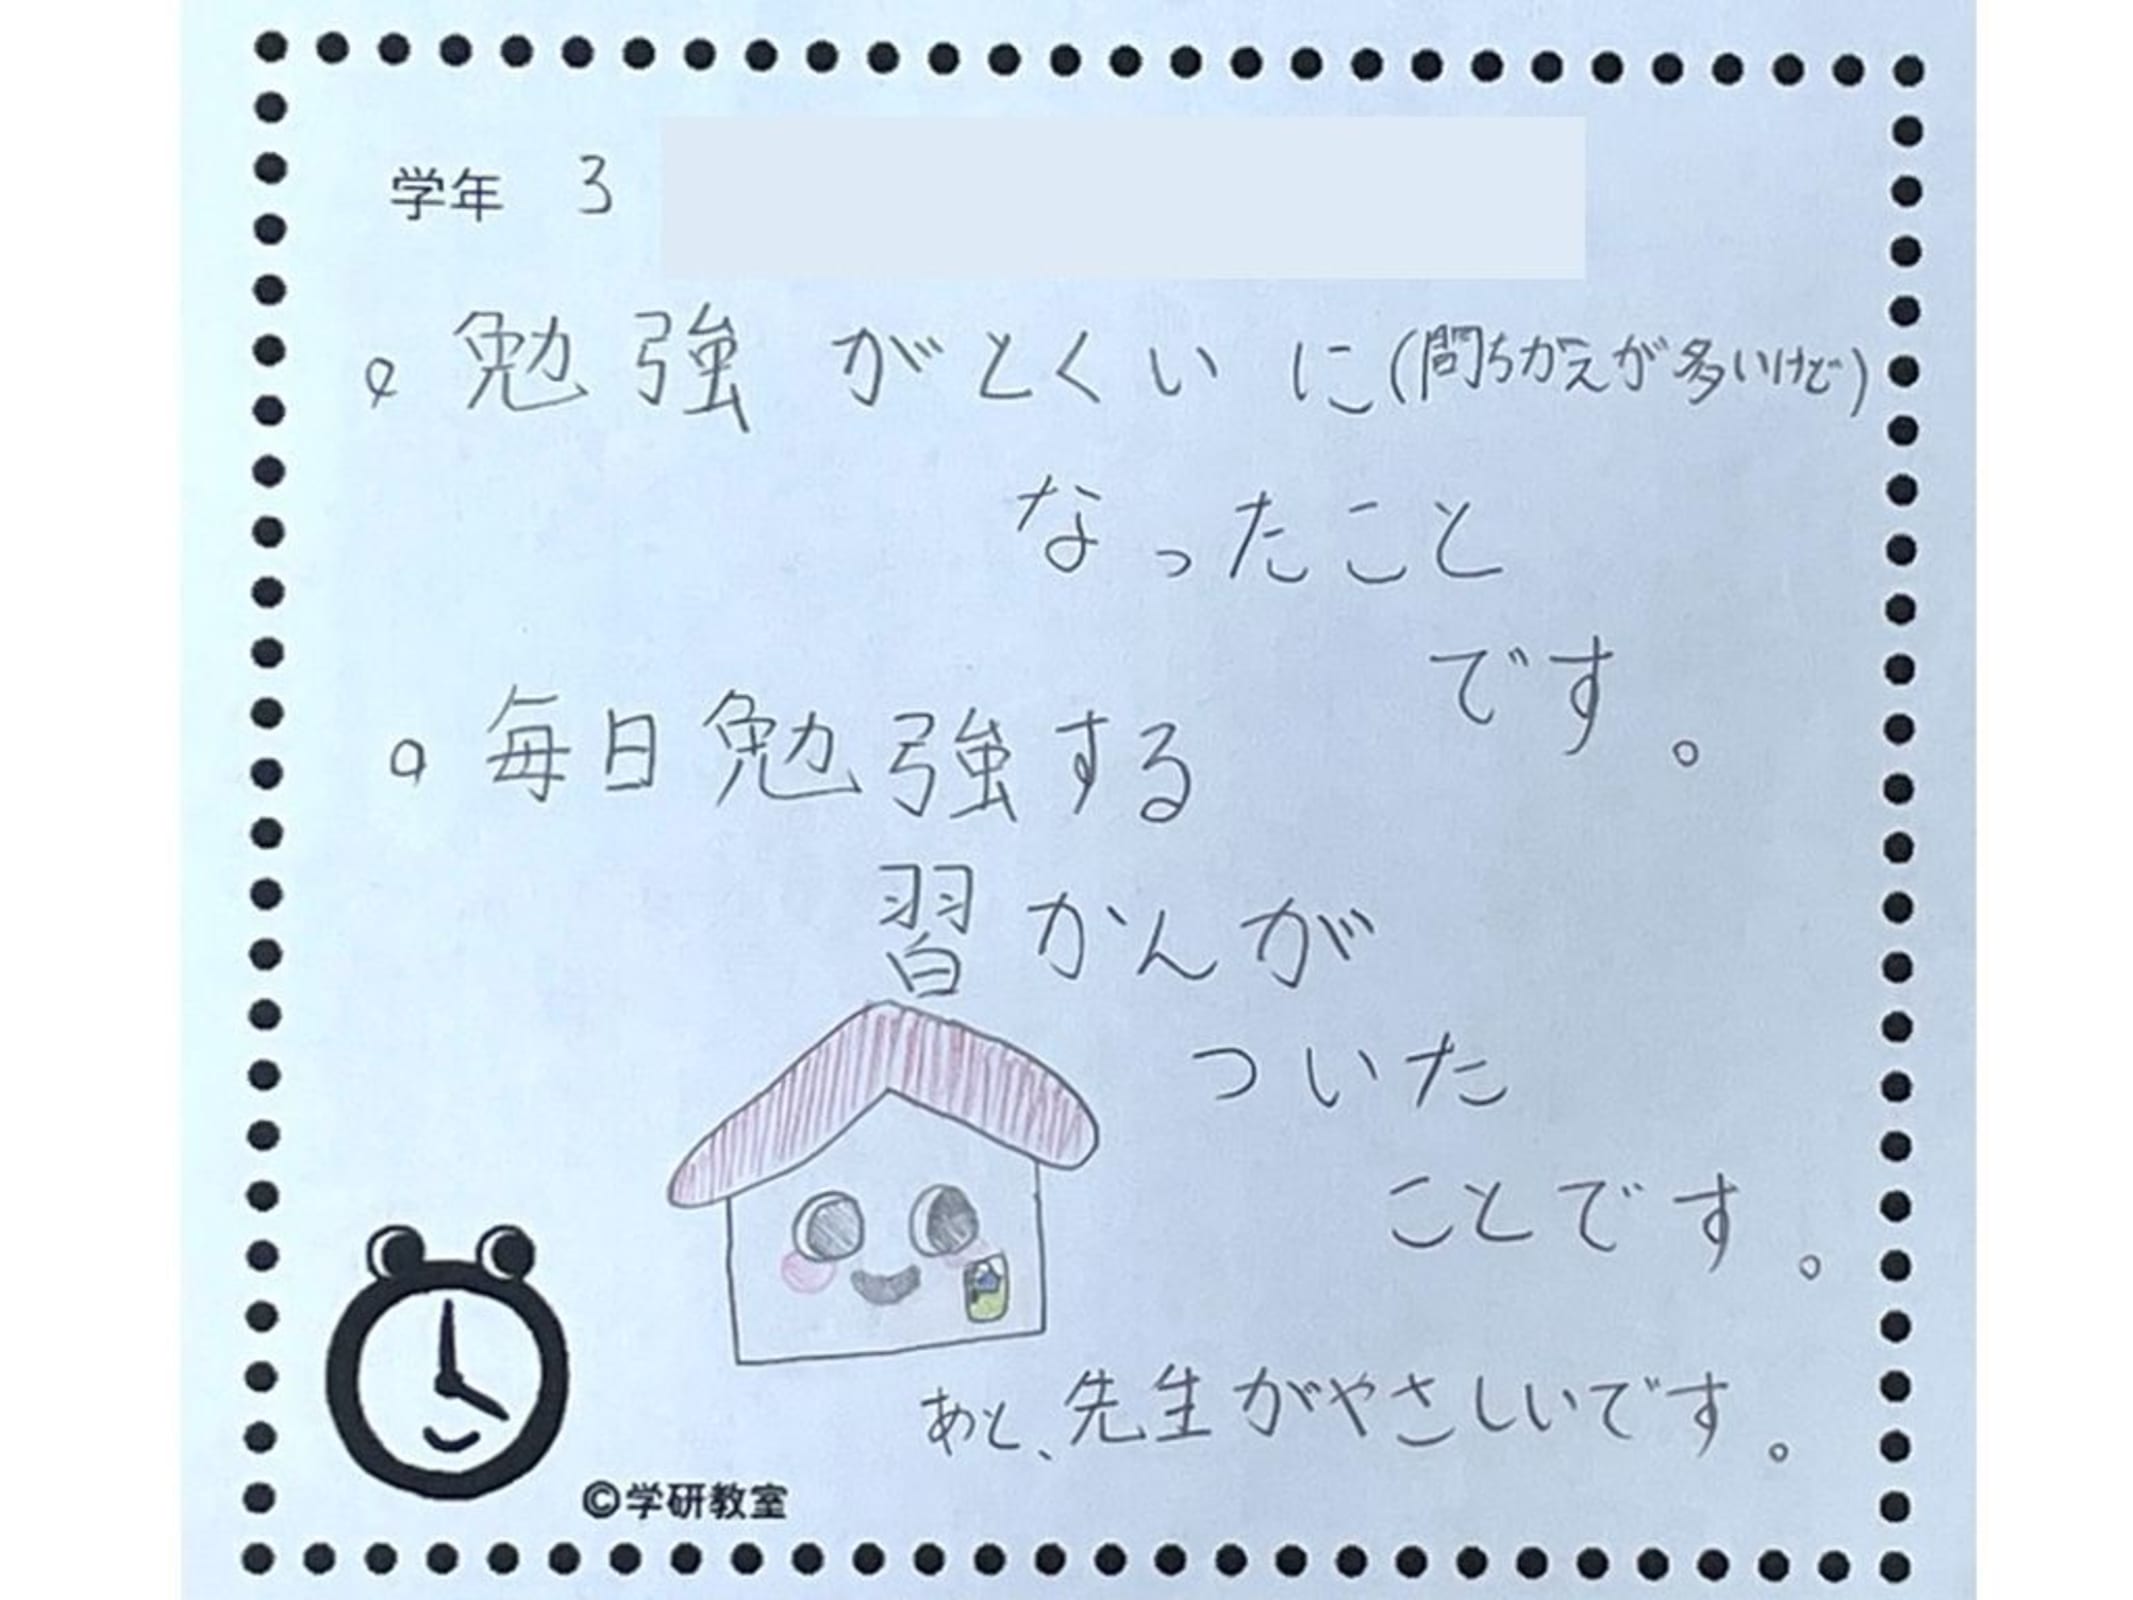 学年 3
。勉強がとくいに(間ちがえが多いけど)
なったこと
です。
。毎日勉強する
習かんが
ついた
ことです。
あと、先生がやさしいです。
©学研教室